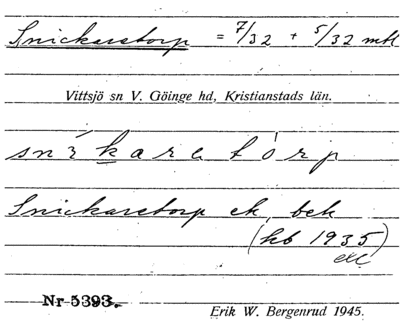 Snickaretorp = 7/32 + 5/32 mtl
Vittsjö sn V. Göinge hd, Kristianstads län.
snikare tòrp
Snickaretorp ek. bek
(kb 1935)
etc
Nr 5393.
Erik W. Bergenrud 1945.